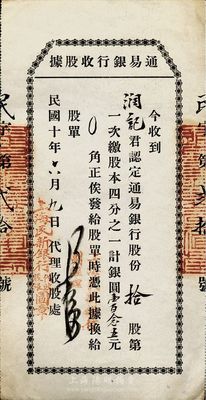 通易銀行收股據
今收到
潤記君認定通易銀行股份拾股第
一次繳股本四分之一計銀圓壹百念五元
0角正俟發給股單時憑此據換給
股單
民國十年六月九日代理收股處
民字第貳拾號